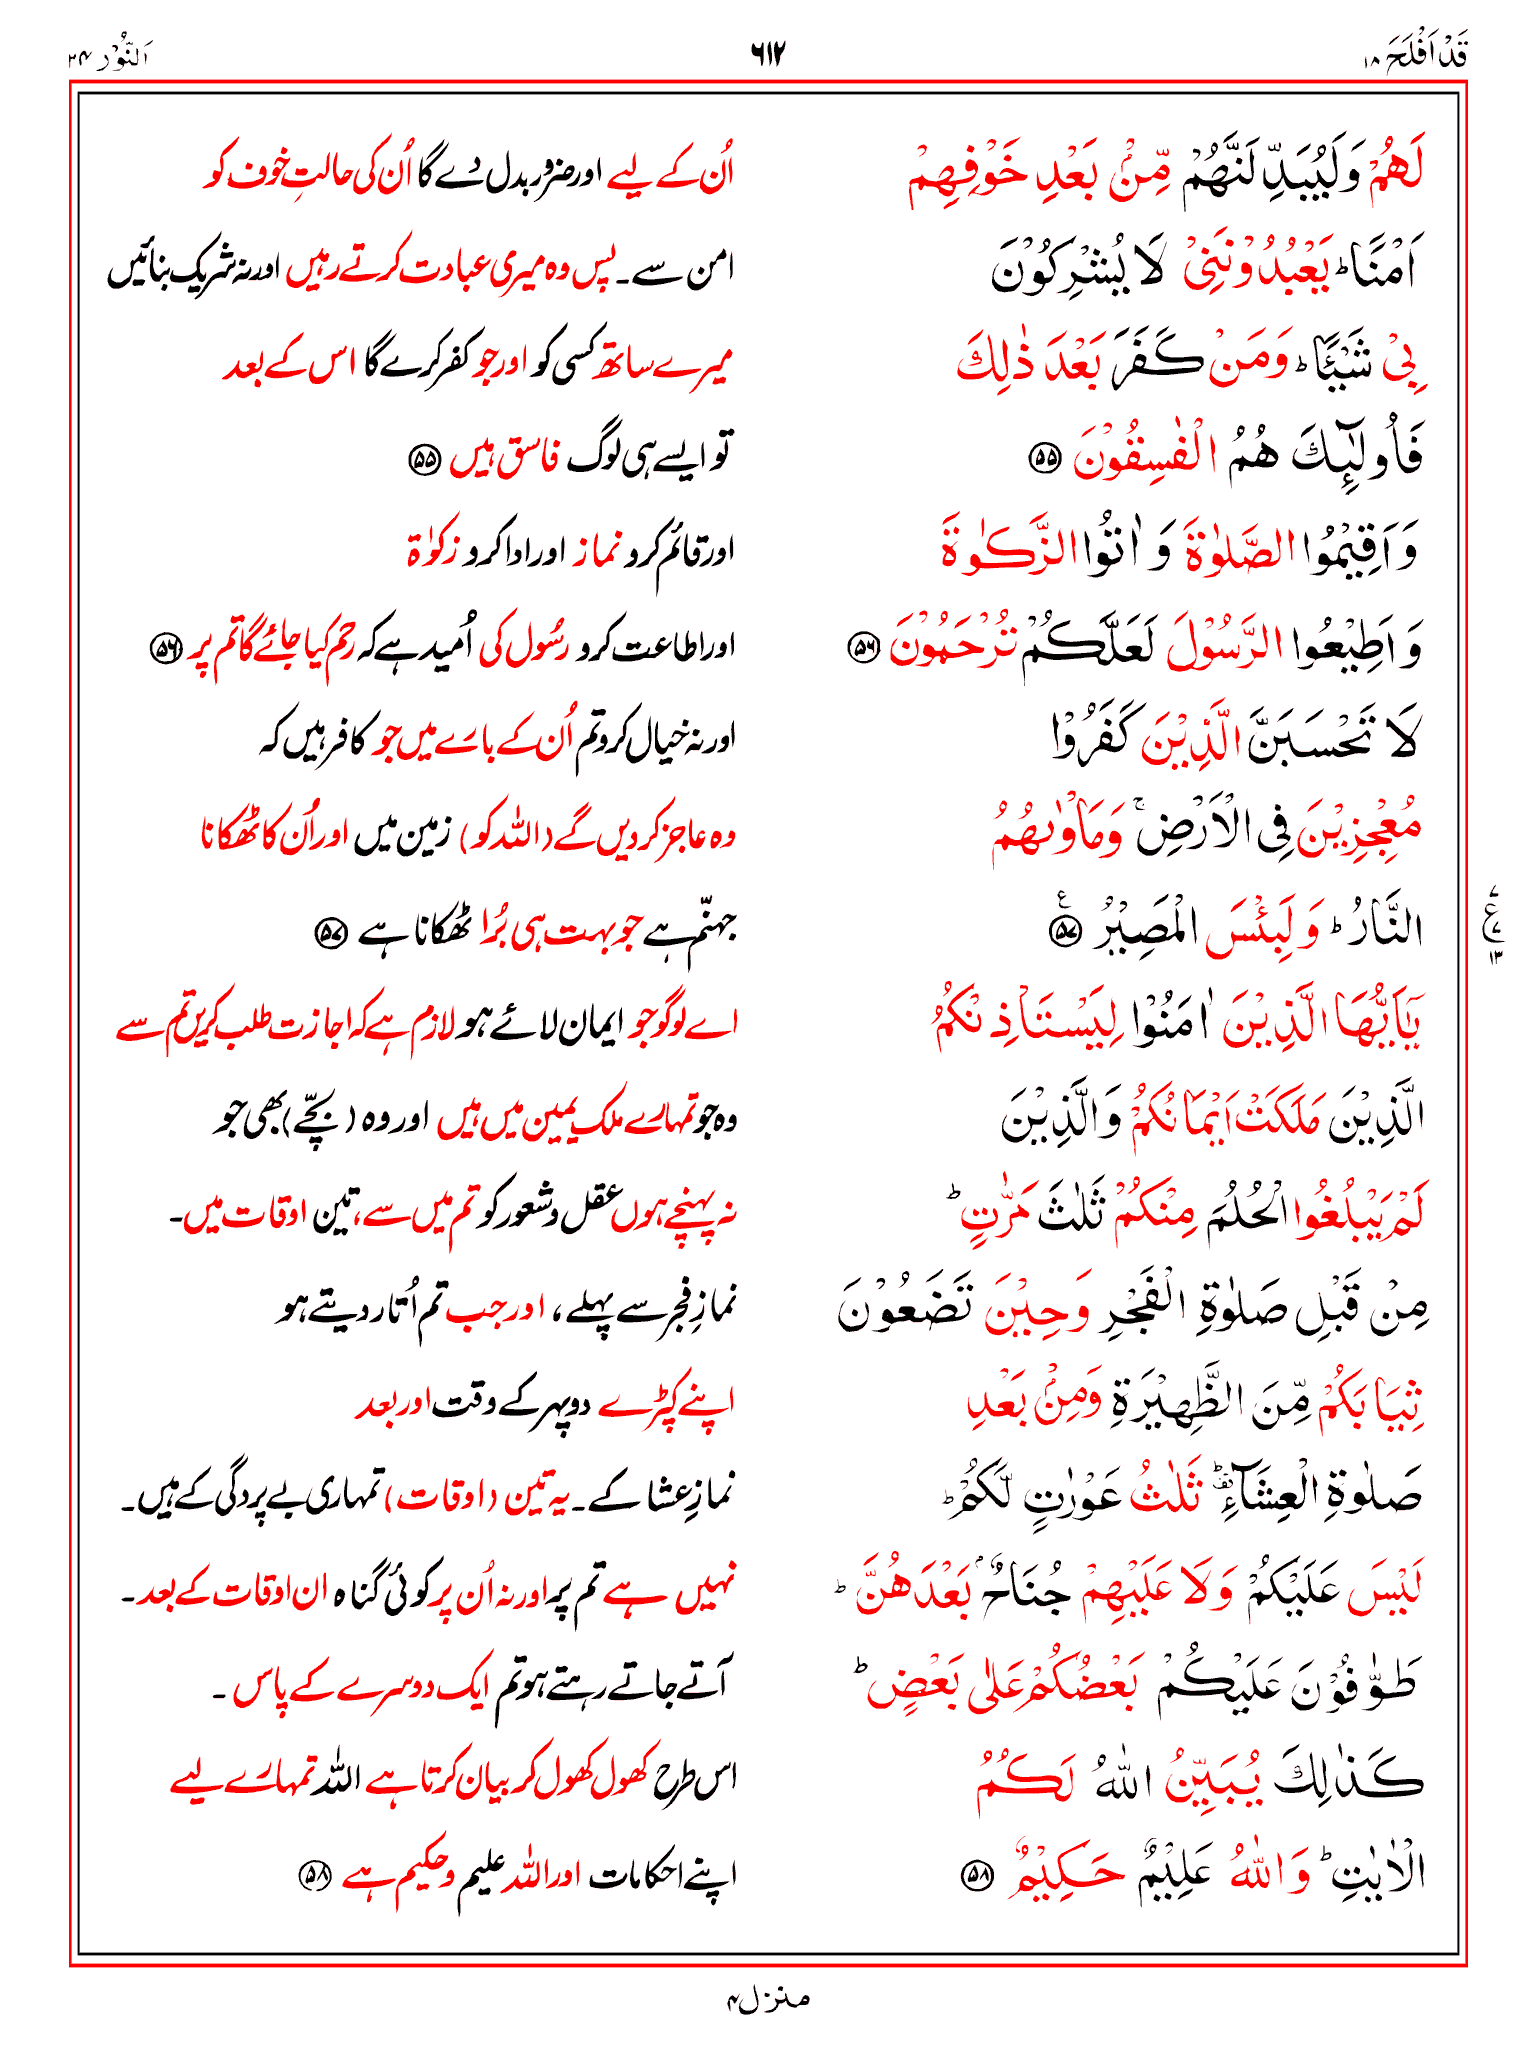 قَدْ اَفْلَحَ ۱۸ ۶۱۲ اَلنُّوْر ۲۴
لَهُمْ وَلَيُبَدِّلَنَّهُمْ مِّنْۢ بَعْدِ خَوْفِهِمْ اُن کے لیے اور ضرور بدل دے گا اُن کی حالتِ خوف کو
اَمْنًا ؕ يَعْبُدُوْنَنِيْ لَا يُشْرِكُوْنَ امن سے۔ پس وہ میری عبادت کرتے رہیں اور نہ شریک بنائیں
بِيْ شَيْـًٔا ؕ وَمَنْ كَفَرَ بَعْدَ ذٰلِكَ میرے ساتھ کسی کو اور جو کفر کرے گا اس کے بعد
فَاُولٰٓئِكَ هُمُ الْفٰسِقُوْنَ ۵۵ تو ایسے ہی لوگ فاسق ہیں ۵۵
وَاَقِيْمُوا الصَّلٰوةَ وَاٰتُوا الزَّكٰوةَ اور قائم کرو نماز اور ادا کرو زکوٰة
وَاَطِيْعُوا الرَّسُوْلَ لَعَلَّكُمْ تُرْحَمُوْنَ ۵۶ اور اطاعت کرو رسُول کی اُمید ہے کہ رحم کیا جائے گا تم پر ۵۶
لَا تَحْسَبَنَّ الَّذِيْنَ كَفَرُوْا اور نہ خیال کرو تم اُن کے بارے میں جو کافر ہیں کہ
مُعْجِزِيْنَ فِي الْاَرْضِ ۚ وَمَاْوٰىهُمُ وہ عاجز کردیں گے (اللہ کو) زمین میں اور اُن کا ٹھکانا
النَّارُ ؕ وَلَبِئْسَ الْمَصِيْرُ ۵۷ جہنّم ہے جو بہت ہی بُرا ٹھکانا ہے ۵۷
ع ۷ ۷ ۱۳
يٰٓاَيُّهَا الَّذِيْنَ اٰمَنُوْا لِيَسْتَاْذِنْكُمُ اے لوگو جو ایمان لائے ہو لازم ہے کہ اجازت طلب کریں تم سے
الَّذِيْنَ مَلَكَتْ اَيْمَانُكُمْ وَالَّذِيْنَ وہ جو تمہارے ملک یمین میں ہیں اور وہ (بچّے) بھی جو
لَمْ يَبْلُغُوا الْحُلُمَ مِنْكُمْ ثَلٰثَ مَرّٰتٍ ؕ نہ پہنچے ہوں عقل و شعور کو تم میں سے، تین اوقات میں۔
مِنْ قَبْلِ صَلٰوةِ الْفَجْرِ وَحِيْنَ تَضَعُوْنَ نمازِ فجر سے پہلے، اور جب تم اُتار دیتے ہو
ثِيَابَكُمْ مِّنَ الظَّهِيْرَةِ وَمِنْۢ بَعْدِ اپنے کپڑے دوپہر کے وقت اور بعد
صَلٰوةِ الْعِشَآءِ ؕ ثَلٰثُ عَوْرٰتٍ لَّكُمْ ؕ نمازِ عشا کے۔ یہ تین (اوقات) تمہاری بے پردگی کے ہیں۔
لَيْسَ عَلَيْكُمْ وَلَا عَلَيْهِمْ جُنَاحٌۢ بَعْدَهُنَّ ؕ نہیں ہے تم پر اور نہ اُن پر کوئی گناہ ان اوقات کے بعد۔
طَوّٰفُوْنَ عَلَيْكُمْ بَعْضُكُمْ عَلٰى بَعْضٍ ؕ آتے جاتے رہتے ہو تم ایک دوسرے کے پاس۔
كَذٰلِكَ يُبَيِّنُ اللّٰهُ لَكُمُ اس طرح کھول کھول کر بیان کرتا ہے اللہ تمہارے لیے
الْاٰيٰتِ ؕ وَاللّٰهُ عَلِيْمٌ حَكِيْمٌ ۵۸ اپنے احکامات اور اللہ علیم و حکیم ہے ۵۸
منزل ۴